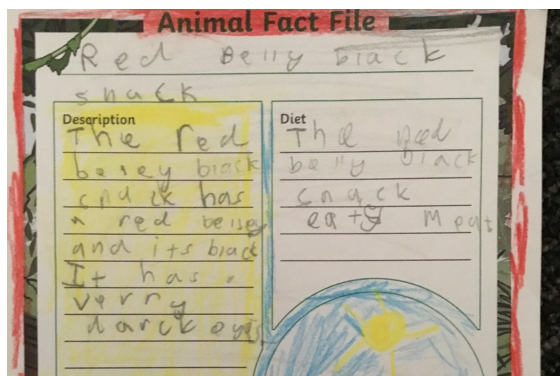 Animal Fact File
Red Belly black
snack
Description
The red
beley black
snack has
a red beisey
and its black
It has
verry
darck eyes
Diet
The red
belly black
snack
eats Meat